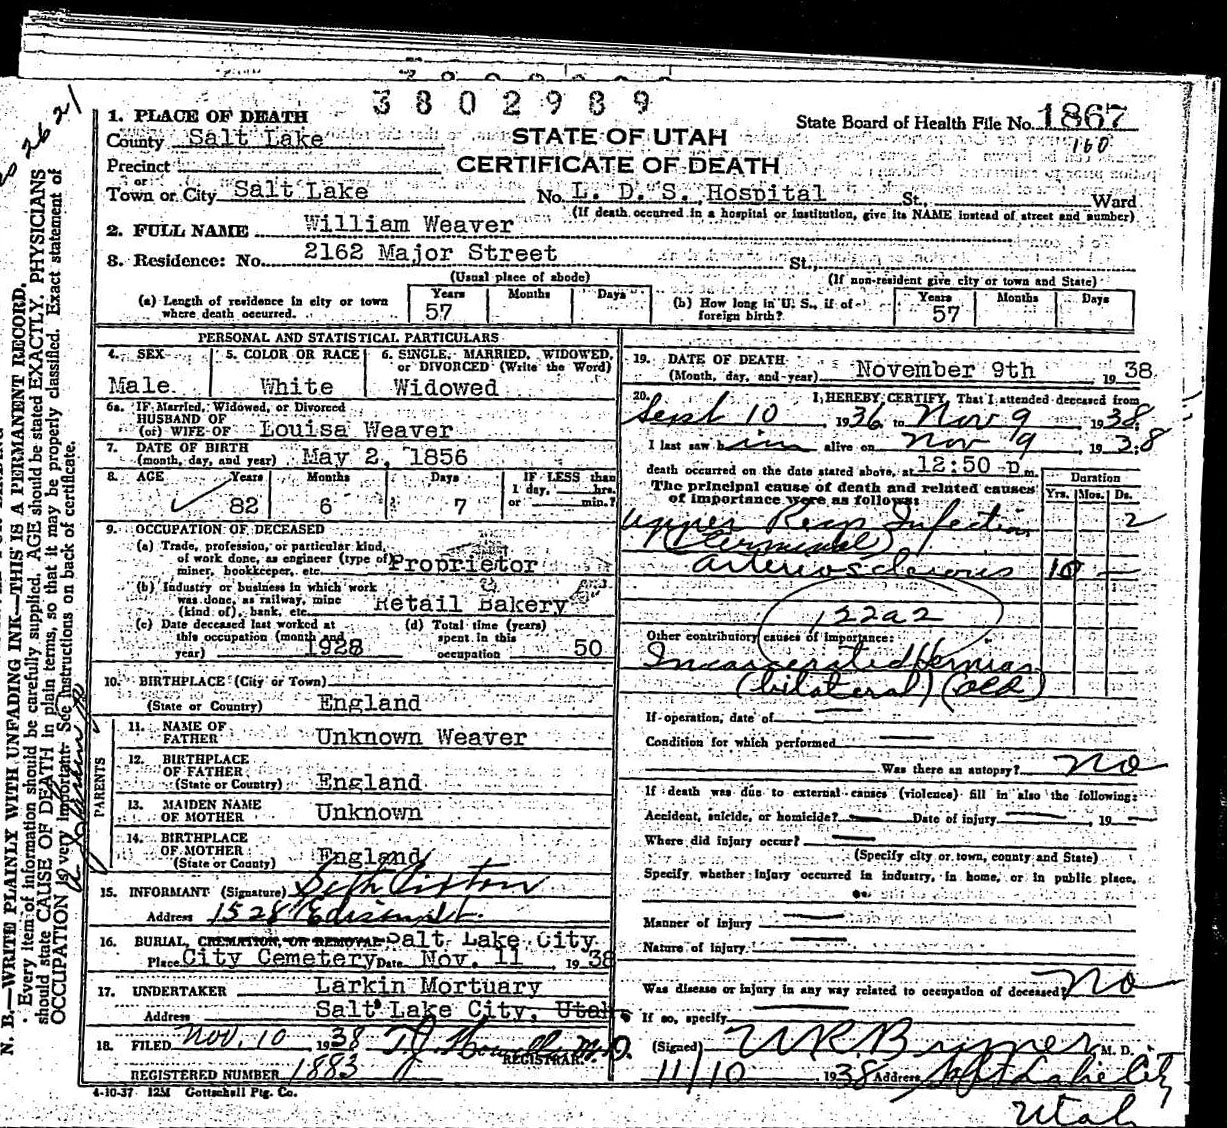 3802989
1. PLACE OF DEATH
County Salt Lake
STATE OF UTAH
State Board of Health File No. 1867
160
Precinct
CERTIFICATE OF DEATH
or
Town or City Salt Lake No. L. D. S. Hospital St., Ward
(If death occurred in a hospital or institution, give its NAME instead of street and number)
2. FULL NAME William Weaver
3. Residence: No. 2162 Major Street St.,
(Usual place of abode) (If non-resident give city or town and State)
(a) Length of residence in city or town where death occurred. Years 57 Months Days
(b) How long in U. S., if of foreign birth? Years 57 Months Days
PERSONAL AND STATISTICAL PARTICULARS
4. SEX Male
5. COLOR OR RACE White
6. SINGLE, MARRIED, WIDOWED, or DIVORCED (Write the Word) Widowed
6a. IF Married, Widowed, or Divorced
HUSBAND OF
(or) WIFE OF Louisa Weaver
7. DATE OF BIRTH
(month, day, and year) May 2, 1856
8. AGE Years 82 Months 6 Days 7 IF LESS than 1 day, hrs. or min.?
9. OCCUPATION OF DECEASED
(a) Trade, profession, or particular kind of work done, as engineer (type of) miner, bookkeeper, etc. Proprietor
(b) Industry or business in which work was done, as railway, mine (kind of), bank, etc. Retail Bakery
(c) Date deceased last worked at this occupation (month and year) 1928
(d) Total time (years) spent in this occupation 50
10. BIRTHPLACE (City or Town)
(State or Country) England
PARENTS
11. NAME OF FATHER Unknown Weaver
12. BIRTHPLACE OF FATHER
(State or Country) England
13. MAIDEN NAME OF MOTHER Unknown
14. BIRTHPLACE OF MOTHER
(State or County) England
15. INFORMANT (Signature) Seth Pixton
Address 1528 Edison St.
16. BURIAL, CREMATION, OR REMOVAL Salt Lake City
Place City Cemetery Date Nov. 11, 1938
17. UNDERTAKER Larkin Mortuary
Address Salt Lake City, Utah
18. FILED Nov. 10 1938 T.J. Howells M.D.
REGISTRAR.
REGISTERED NUMBER 1883
4-10-37 12M Gottschall Ptg. Co.
19. DATE OF DEATH
(Month, day, and year) November 9th 1938
20. I HEREBY CERTIFY, That I attended deceased from
Sept 10 1936 to Nov 9 1938
I last saw him alive on Nov 9, 1938
death occurred on the date stated above, at 12:50 p.m.
The principal cause of death and related causes of importance were as follows:
Duration
Yrs. Mos. Ds.
Upper Resp Infection 2
(Terminal)
Arteriosclerosis 10 —
122a2
Other contributory causes of importance:
Incarcerated Hernias
(bilateral) (old)
If operation, date of —
Condition for which performed —
Was there an autopsy? No
If death was due to external causes (violence) fill in also the following:
Accident, suicide, or homicide? — Date of injury — 19 —
Where did injury occur? —
(Specify city or town, county and State)
Specify whether injury occurred in industry, in home, or in public place.
Manner of injury —
Nature of injury —
Was disease or injury in any way related to occupation of deceased? No
If so, specify
(Signed) W.R. Brymer M. D.
11/10 1938 Address Salt Lake City
Utah
N. B.—WRITE PLAINLY WITH UNFADING INK—THIS IS A PERMANENT RECORD.
Every item of information should be carefully supplied. AGE should be stated EXACTLY. PHYSICIANS
should state CAUSE OF DEATH in plain terms, so that it may be properly classified. Exact statement of
OCCUPATION is very important. See instructions on back of certificate.
26 21